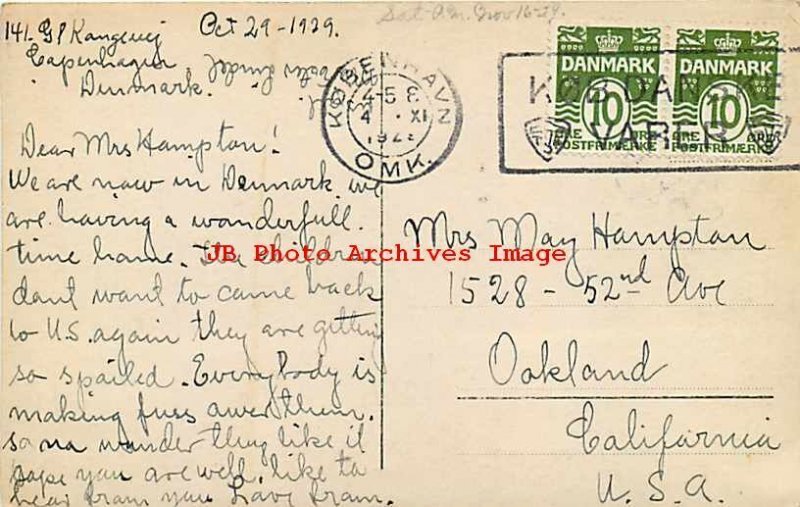 Sat. A.M. Nov 16-29.
141. Gl Kongevej Oct 29-1929.
Copenhagen
Denmark.
Dear Mrs Hampton!
We are now in Denmark we
are having a wonderfull.
time home. The children
dont want to come back
to U.S. again they are getting
so spoiled. Everybody is
making fuss ower them.
so no wonder they like it
hope you are well. like to
hear from you Love from.
KØBENHAVN
4-5 E
4. XI
192
OMK.
KØB DANSKE
VARER
DANMARK
10
ØRE ØRE
POSTFRIMÆRKE
DANMARK
10
ØRE ØRE
POSTFRIMÆRKE
Mrs May Hampton
1528 - 52nd Ave
Oakland
California
U.S.A.
JB Photo Archives Image